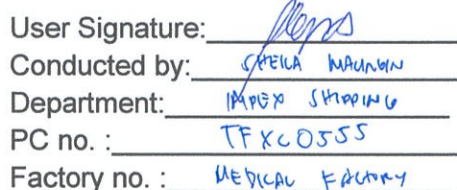 User Signature:
Conducted by: SHEILA
Department: IMPEX SHIPPING
PC no. : TFXC0555
Factory no. : MEDICAL FACTORY